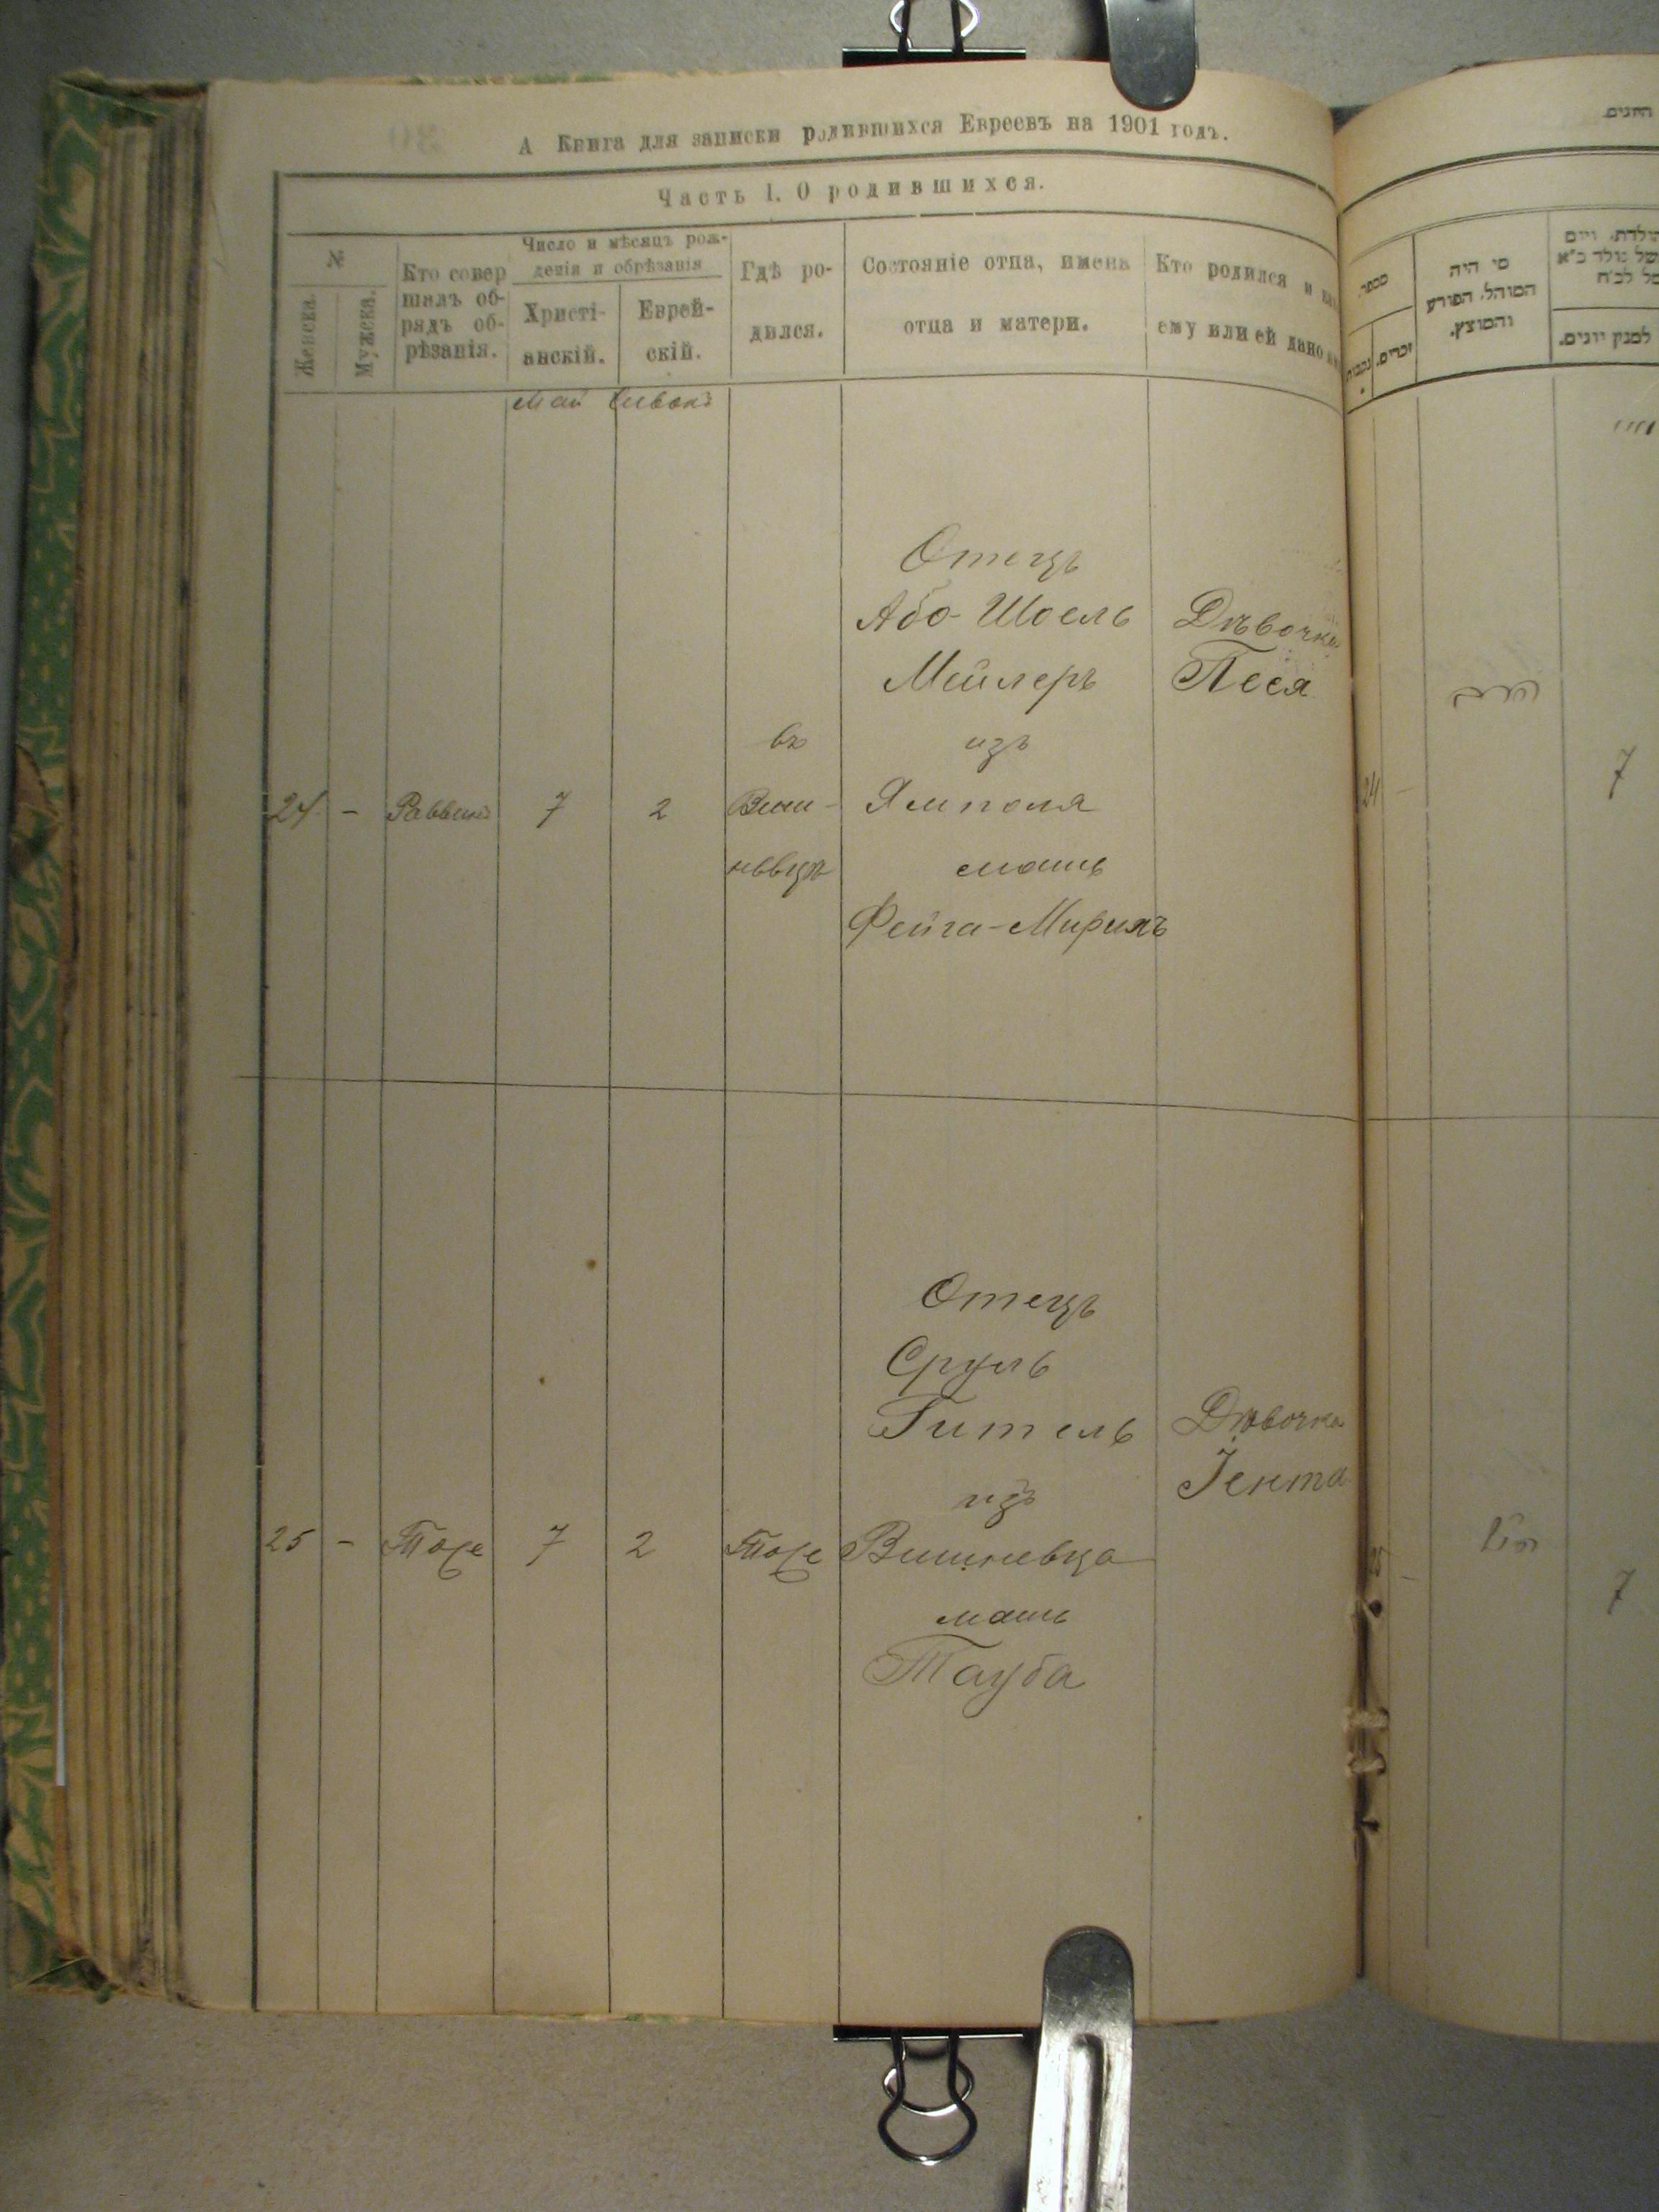 А Книга для записки родившихся Евреевъ на 1901 годъ.
Часть I. О родившихся.
№
Женска.
Мужска.
Кто совер
шалъ об-
рядъ об-
рѣзанія.
Число и мѣсяцъ рож-
денія и обрѣзанія
Христі-
анскій.
Еврей-
скій.
Гдѣ ро-
дился.
Состояніе отца, имена
отца и матери.
Кто родился и
ему или ей дано
Май Сивонъ
24 - Раввинъ 7 2
въ
Виш-
невцѣ
Отецъ
Або-Шоель
Мейлеръ
изъ
Ямполя
мать
Фейга-Мириямъ
Дѣвочка
Песя
25 - Тоже 7 2 Тоже
Отецъ
Сруль
Гитель
изъ
Вишневца
мать
Тауба
Дѣвочка
Іента
מספר.
נקבות
זכרים.
מי היה
המוהל, הפורע
והמוצץ.
למנין יונים.
24 -
7
25 -
7